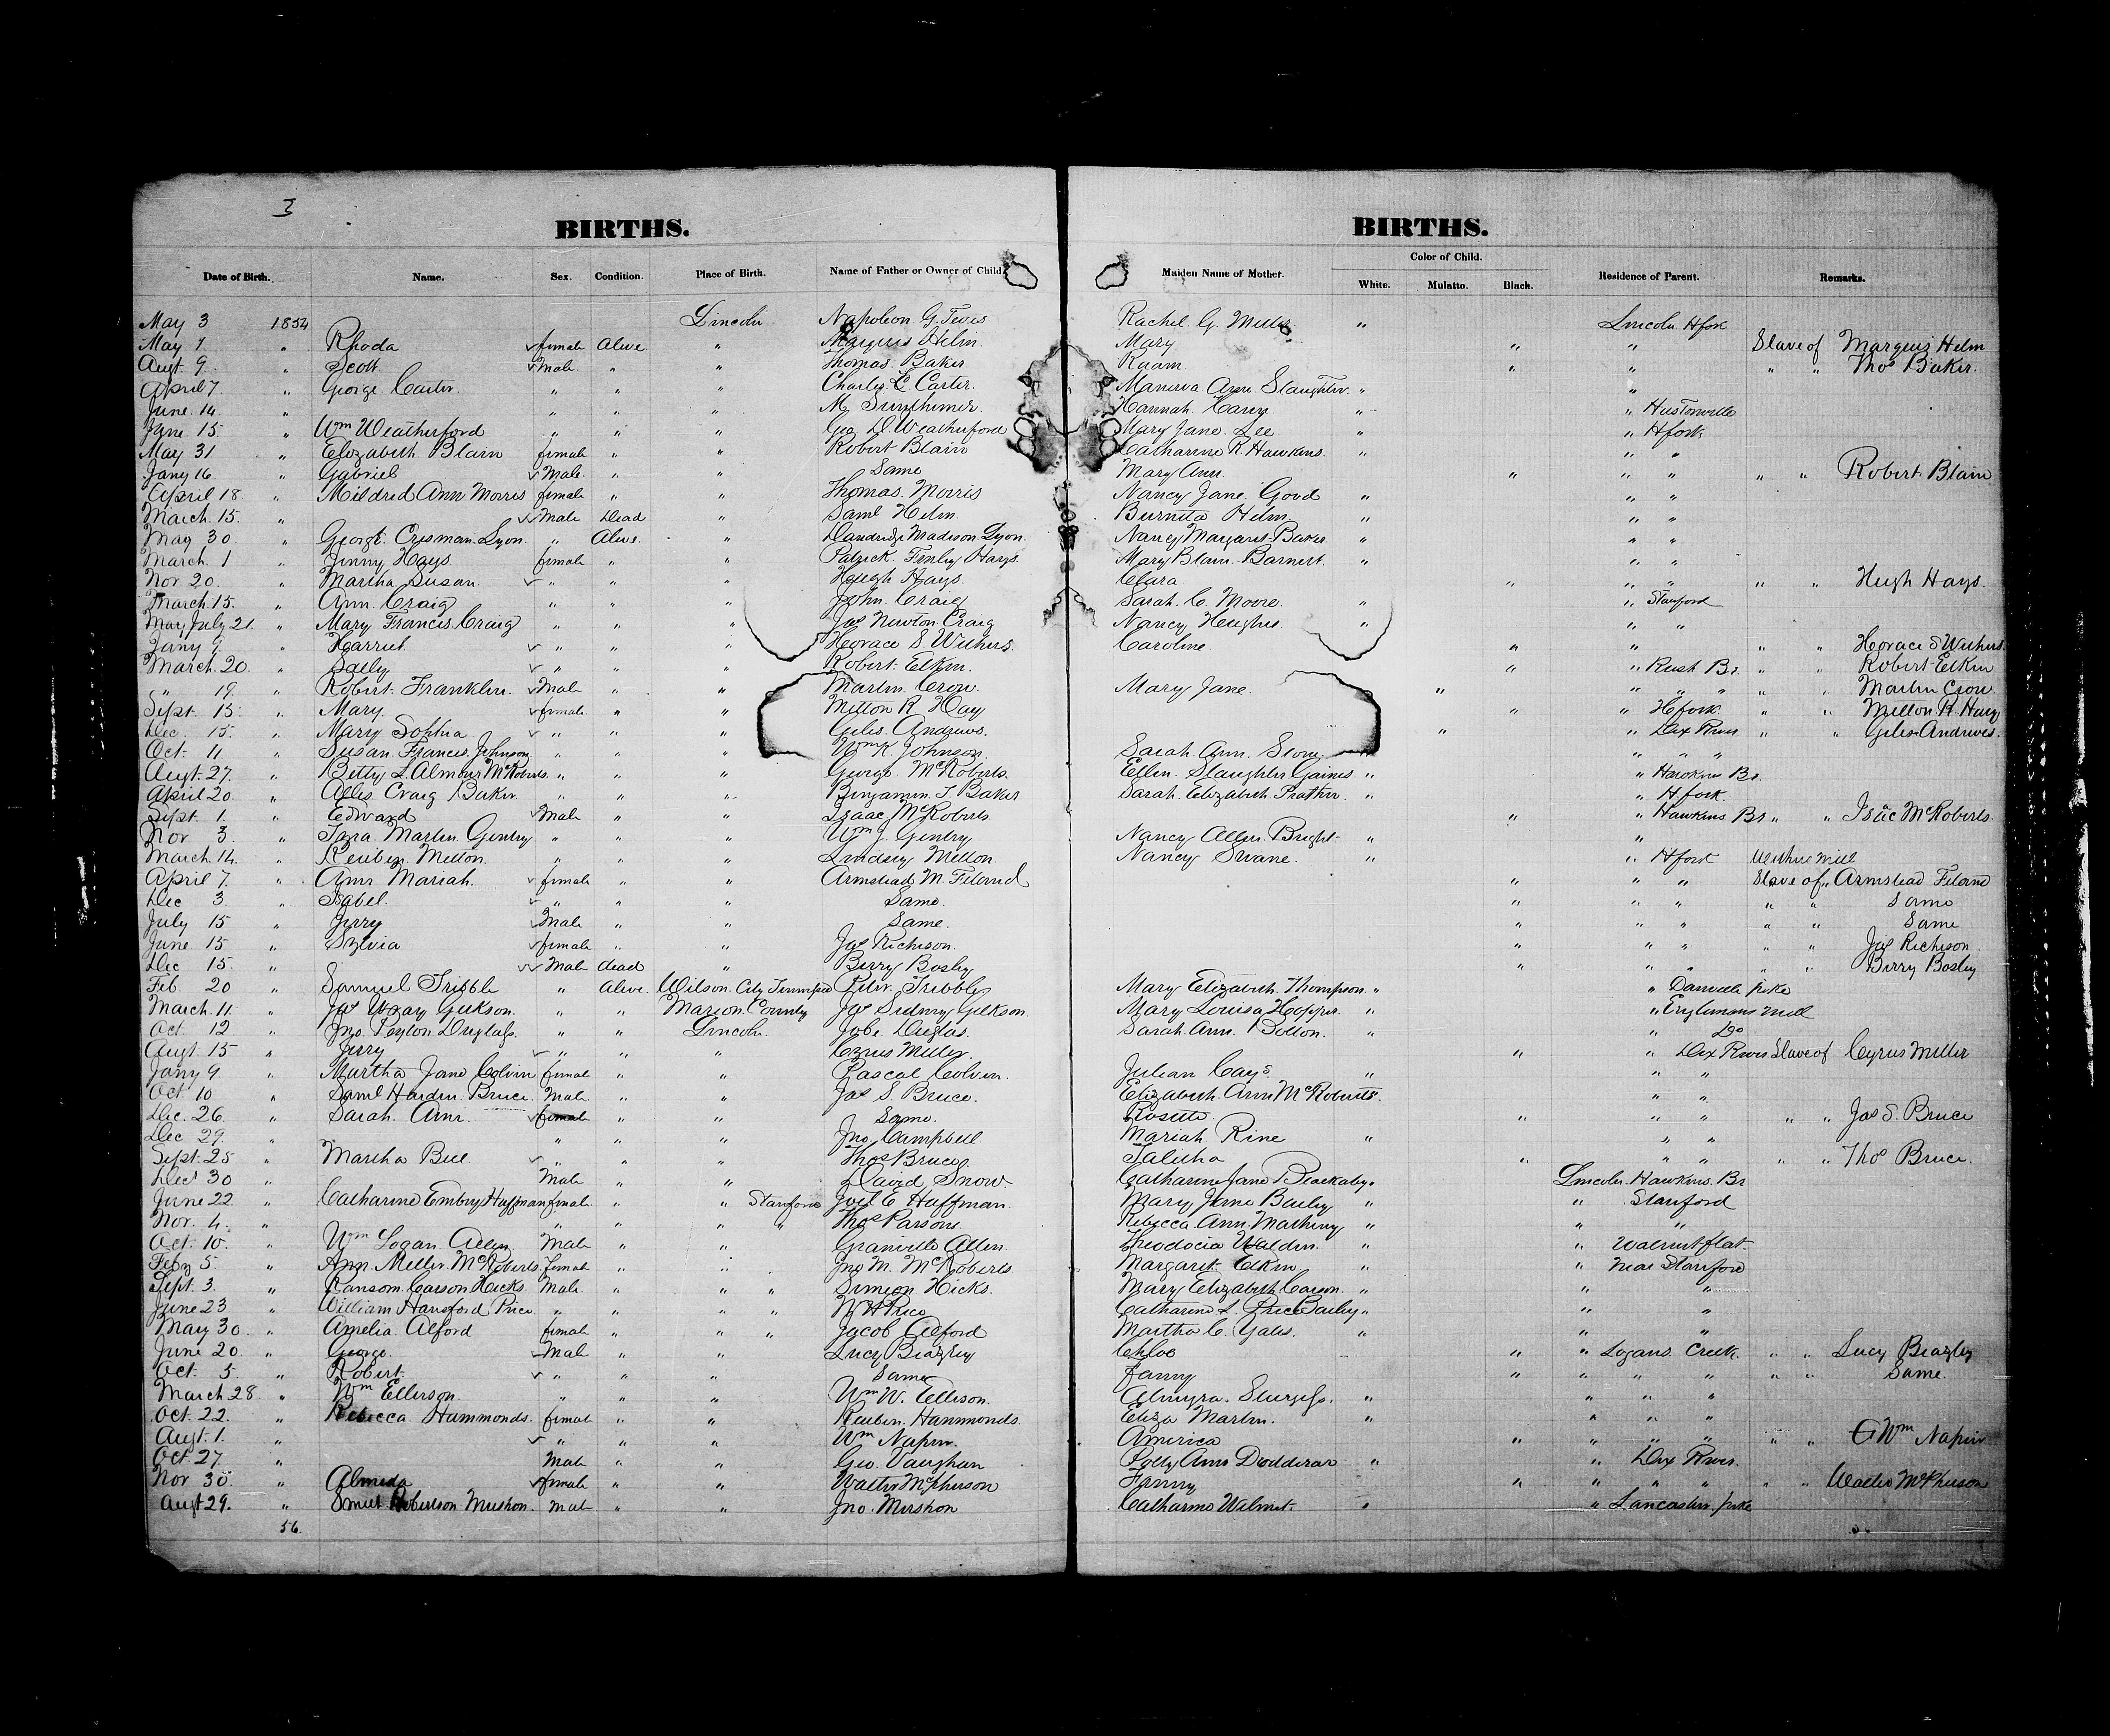 3
BIRTHS. BIRTHS.
Date of Birth. Name. Sex. Condition. Place of Birth. Name of Father or Owner of Child. Maiden Name of Mother. Color of Child. White. Mulatto. Black. Residence of Parent. Remarks.
May 3 1854 Lincoln Napoleon G. Tevis Rachel G. Mills " Lincoln Hfork
May 1 " Rhoda female Alive " Marquis Helm Mary " " Slave of Marquis Helm
Augt 9 " Scott Male " " Thomas Baker " " " " Thos Baker.
April 7 " George Carter " " " Charles C. Carter Manerva Ann Slaughter " "
June 14 " " " " M. Hannah " " Hustonville
June 15 " Wm Weatherford " " " Geo D Weatherford Mary Jane Lee " " Hfork
May 31 " Elizabeth Blain female " " Robert Blain Catharine R. Hawkins " " "
Jany 16 " Gabriel Male " " Same Mary Ann " " " " " Robert Blain
April 18 " Mildred Ann Morris female " " Thomas Morris Nancy Jane Good " " "
March 15 " Male Dead " Saml Helm Burnita Helm " " "
May 30 " George Crisman Lyon " Alive " Dandridge Madison Lyon Nancy Margaret Baker " " "
March 1 " Jinny Hays female " " Patrick Fenley Hays Mary Blain Barnett " " "
Nov 20 " Martha Susan " " " Hugh Hays Clara " " " " " Hugh Hays
March 15 " Ann Craig " " " John Craig Sarah C. Moore " " Stanford
May July 21 " Mary Francis Craig " " " Jas Newton Craig Nancy Hughes " " "
Jany 9 " Harriet " " " Horace S Withers Caroline " " " " Horace S Withers
March 20 " Sally " " " Robert Elkin " " Rush Br " " Robert Elkin
" 19 " Robert Franklin Male " " Martin Crow Mary Jane " " " " " " Martin Crow
Sept 15 " Mary female " " Milton R Hay " " Hfork " " Milton R. Hay
Dec 15 " Mary Sophia " " " Giles Andrews " " Dix River " " Giles Andrews
Oct 11 " Susan Francis Johnson " " " Wm K Johnson Sarah Ann Stone " " " "
Augt 27 " Betty L Almour McRoberts " " " George McRoberts Ellen Slaughter Gaines " " Hawkins Br
April 20 " Alles Craig Baker " " " Benjamin T Baker Sarah Elizabeth Prather " " H fork
Sept 1 " Edward Male " " Isaac McRoberts " " Hawkins Br " " Isac McRoberts
Nov 3 " Ezra Martin Gentry " " " Wm J. Gentry Nancy Allen Bright " "
March 14 " Reuben Melton " " " Lindsey Melton Nancy Swane " " Hford
April 7 " Ann Mariah female " " Armstead M. Feland " " " Slave of " Armstead Feland
Dec 3 " Isabel " " " Same " " " " " Same
July 15 " Jerry Male " " Same " " " " " Same
June 15 " Sylvia female " " Jas Richison " " " " " Jas Richison
Dec 15 " Male dead " Berry Bosley " " " " " Berry Bosley
Feb 20 " Samuel Tribble " Alive Wilson City Tennessee Tribble Mary Elizabeth Thompson " " Danville pike
March 11 " Jas Wray Gilkson " " Marion County Jas Sidney Gilkson Mary Louisa Hopper " " Englemans Mill
Oct 12 " Jno Peyton Duglass " " Lincoln Jabe Duglas Sarah Ann Bolton " " Do
Augt 15 " Jerry " " " Cyrus Miller " " Dix River Slave of Cyrus Miller
Jany 9 " Martha Jane Colvin female " " Pascal Colvin Julian Cays " " "
Oct 10 " Saml Hardin Bruce Male " " Jas S Bruce Elizabeth Ann McRoberts " " "
Dec 26 " Sarah Ann female " " Same Rosette " " " " " Jas S. Bruce
Dec 29 " " " " Jno Campbell Mariah Rine " " "
Sept 25 " Martha Bell " " " Thos Bruce Talitha " " " " " Thos Bruce
Dect 30 " Male " " David Snow Catharine Jane Blackaby " Lincoln Hawkins Br
June 22 " Catharine Embry Huffman female " " Stanford Joel E Huffman Mary Jane Bailey " " Stanford
Nov. 4 " " " " " Thos Parsons Rebecca Ann Matheny " " "
Oct 10 " Wm Logan Allen Male " " Granville Allen Theodocia Walden " " Walnut flat
Feby 5 " Ann Miller McRoberts female " " " Jno M. McRoberts Margaret Elkin " " Near Stanford
Sept 3 " Ransom Carson Hicks Male " " " Simeon Hicks Mary Elizabeth Carson " " "
June 23 " William Hansford Price " " " " W H Price Catharine L. Price Bailey " " "
May 30 " Amelia Alford female " " " Jacob Alford Martha C. Yates " " "
June 20 " George Male " " Lucy Beazley Chloe " " Logans Creek " " Lucy Beazley
Oct 5 " Robert " " " Same Fanny " " " " " " Same
March 28 " Wm Ellerson " " " Wm W. Ellison Almyra Sturgess " " " "
Oct. 22 " Rebecca Hammonds female " " Reuben Hammonds Eliza Martin " " " "
Augt 1 " " " " Wm Napier America " " " " " " Wm Napier
Oct 27 " Male " " Geo. Vaughan Polly Ann Dodderar " " Dix River
Nov 30 " Almeda female " " Walter McPherson Fanny " " " " " " Walter McPherson
Augt 29 " Robertson Mershon male " " Jno. Mershon Catharine Wilmot " " Lancaster pike
56